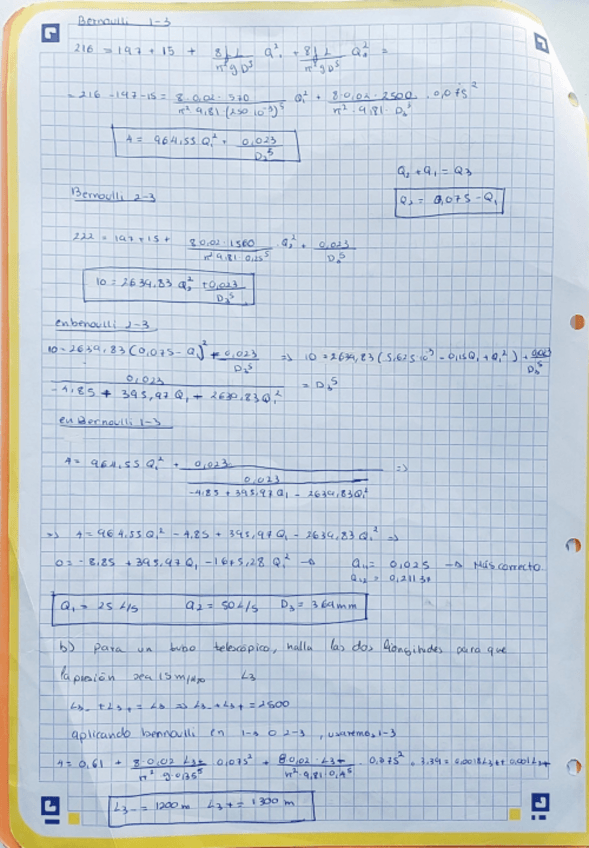 Bernoulli 1-3
216 = 197 + 15 + 8fL/π²gD⁵ Q₁² + 8fL/π²gD⁵ Q₃² =
= 216 - 197 - 15 = 8·0,02·570/π²·9,81·(250·10⁻³)⁵ Q₁² + 8·0,02·2500/π²·9,81·D₃⁵ · 0,075²
4 = 964,55 Q₁² + 0,023/D₃⁵
Q₂ + Q₁ = Q3
Q₂ = 0,075 - Q₁
Bernoulli 2-3
222 = 197 + 15 + 8·0,02·1560/π²·9,81·0,25⁵ · Q₂² + 0,023/D₃⁵
10 = 2634,83 Q₂² + 0,023/D₃⁵
en benoulli 2-3
10 = 2634,83 (0,075 - Q₁)² + 0,023/D₃⁵ => 10 = 2634,83 (5,625·10⁻³ - 0,15Q₁ + Q₁²) + 0,023/D₃⁵
0,023/-4,85 + 395,97 Q₁ + 2630,83 Q₁² = D₃⁵
en Bernoulli 1-3
4 = 964,55 Q₁² + 0,023/(0,023/-4,85 + 395,97 Q₁ - 2634,83Q₁²) =>
=> 4 = 964,55 Q₁² - 4,85 + 395,97 Q₁ - 2634,83 Q₁² =>
0 = -8,85 + 395,97 Q₁ - 1675,28 Q₁² → Q₁₁ = 0,025 → Más correcto
Q₁₂ = 0,21137
Q₁ = 25 L/s Q2 = 50 L/s D₃ = 369mm
b) Para un tubo telescópico, halla las dos longitudes para que
la presión sea 15 m L3
L3- + L3+ = L3 => L3- + L3+ = 2500
aplicando bernoulli en 1-3 o 2-3, usaremos 1-3
4 = 0,61 + 8·0,02·L3-/π²·9·0,35⁵ 0,075² + 8·0,02·L3+/π²·9,81·0,4⁵ · 0,075² = 3,39 = 0,0018L3- + 0,001L3+
L3- = 1200 m L3+ = 1300 m